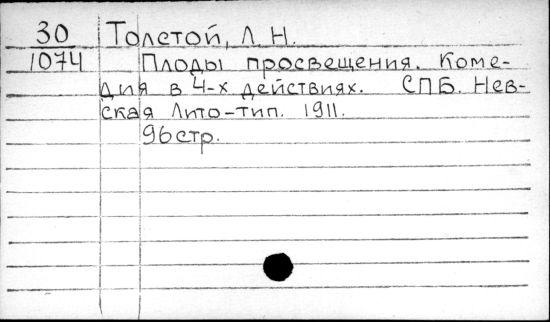 30 Толстой, Л. Н.
1074 Плоды просвещения. Коме-
дия в 4-х действиях. СПБ. Нев-
ская Лито-тип. 1911.
96 стр.